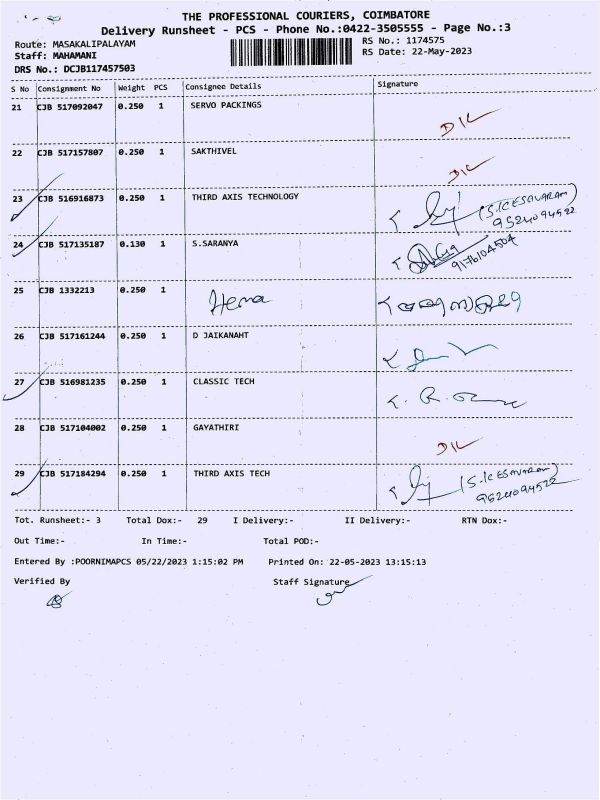 THE PROFESSIONAL COURIERS, COIMBATORE
Delivery Runsheet - PCS - Phone No.:0422-3505555 - Page No.:3
Route: MASAKALIPALAYAM
RS No.: 1174575
Staff: MAHAMANI
RS Date: 22-May-2023
DRS No.: DCJB117457503
S No Consignment No Weight PCS Consignee Details Signature
21 CJB 517092047 0.250 1 SERVO PACKINGS D/L
22 CJB 517157807 0.250 1 SAKTHIVEL D/L
23 CJB 516916873 0.250 1 THIRD AXIS TECHNOLOGY
9524094522
24 CJB 517135187 0.130 1 S.SARANYA
9176104504
25 CJB 1332213 0.250 1 Hema
26 CJB 517161244 0.250 1 D JAIKANAHT
27 CJB 516981235 0.250 1 CLASSIC TECH
28 CJB 517104002 0.250 1 GAYATHIRI D/L
29 CJB 517184294 0.250 1 THIRD AXIS TECH
9524094522
Tot. Runsheet:- 3 Total Dox:- 29 I Delivery:- II Delivery:- RTN Dox:-
Out Time:- In Time:- Total POD:-
Entered By :POORNIMAPCS 05/22/2023 1:15:02 PM Printed On: 22-05-2023 13:15:13
Verified By Staff Signature